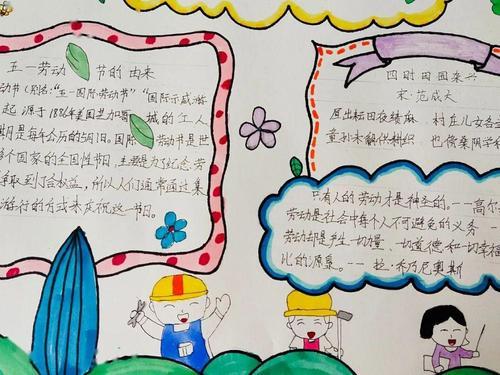 五一劳动节的由来
动节(别名:"五一国际劳动节""国际示威游
起源于1886年美国芝加哥城的工人
期是每年公历的5月1日。国际劳动节是世
多个国家的全国性节日,主要是为纪念劳
争取到了合权益,所以人们通常通过集
游行的方式来庆祝这一节日。
四时田园杂兴
宋·范成大
昼出耘田夜绩麻 村庄儿女各
童孙未解供耕织 也傍桑阴学
只有人的劳动才是神圣的。--高尔
劳动是社会中每个人不可避免的义务。--
劳动却是产生一切力量、一切道德和一切幸福
比的源泉。--拉·乔乃尼奥斯